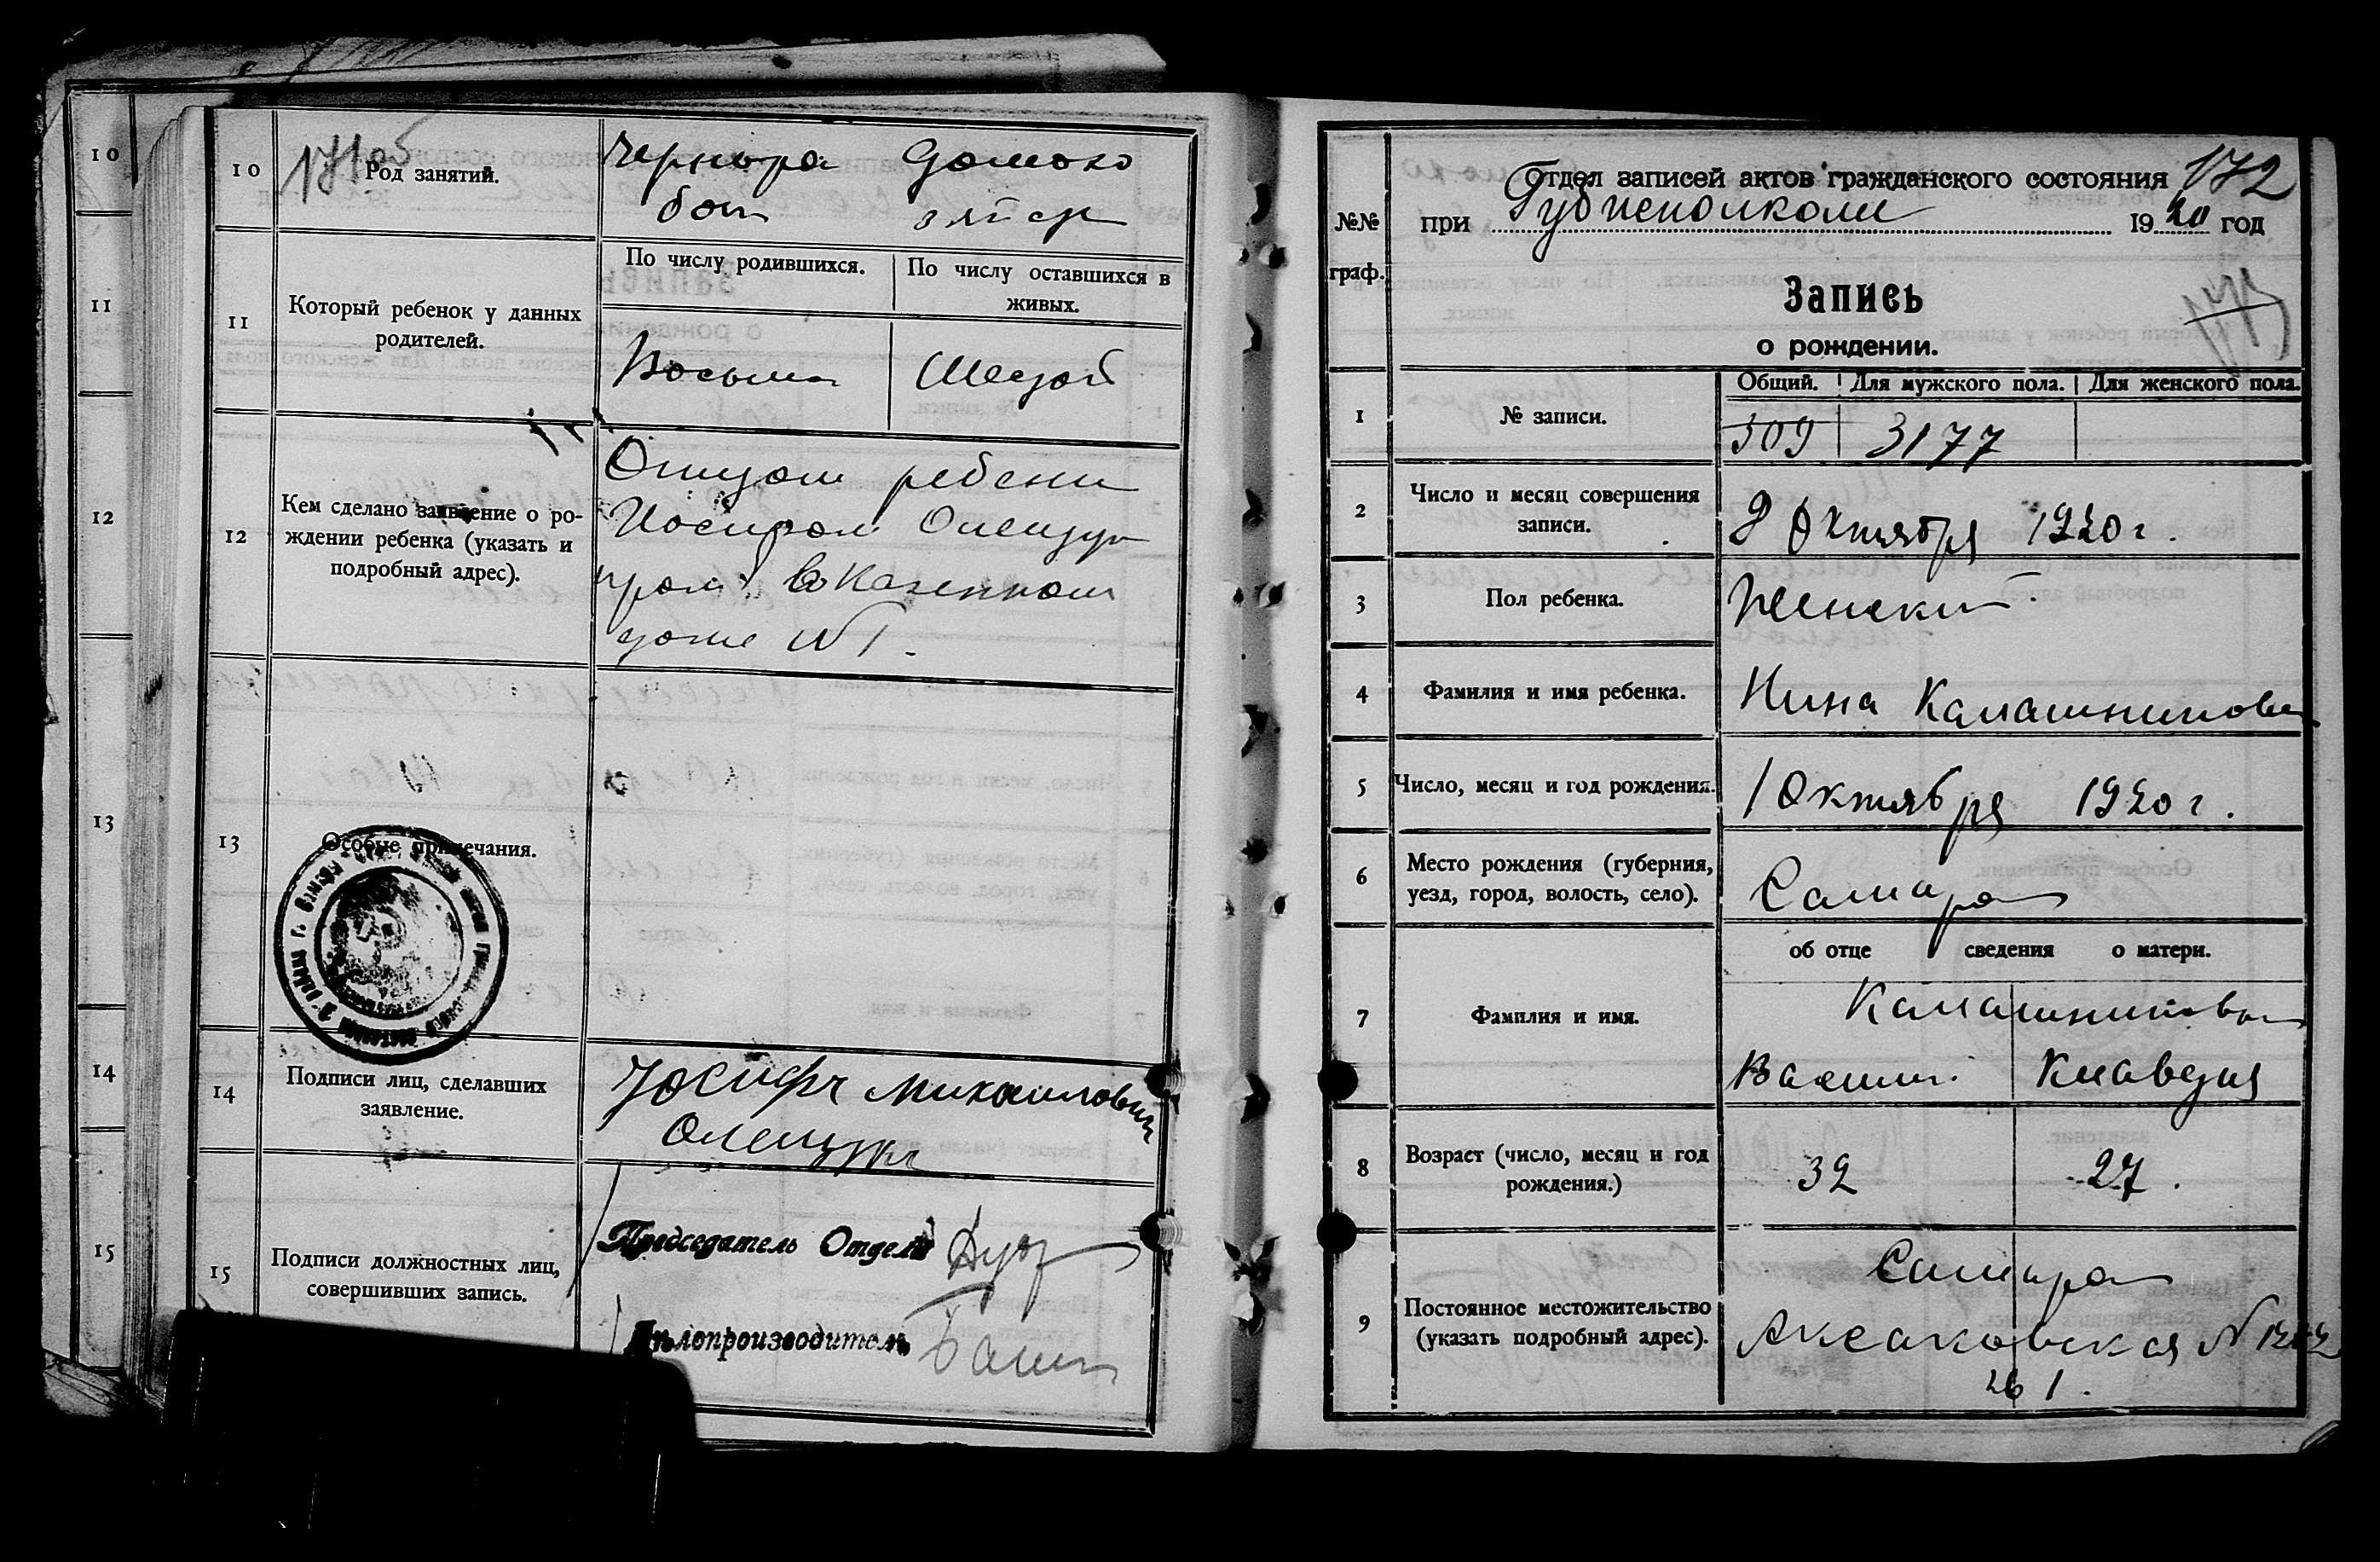 10
11
12
13
14
15
10
171об
Род занятий.
Чернора
Домохо
боч
зяйср
11
Который ребенок у данных
родителей.
По числу родившихся.
По числу оставшихся в
живых.
Восьмы
Шестой
12
Кем сделано заявление о ро-
ждении ребенка (указать и
подробный адрес).
Отцом ребенк
Иосифом Олещук
пром. Казенном
доме №1.
13
Особые примечания.
14
Подписи лиц, сделавших
заявление.
Иосифъ Михаиловичъ
Олещукъ
15
Подписи должностных лиц,
совершивших запись.
Председатель Отдела
Дѣлопроизводитель
172
№№
граф.
Отдел записей актов гражданского состояния
при Губисполкоме 1920 год
Запись
о рождении.
1
№ записи.
Общий.
Для мужского пола.
Для женского пола.
509
3177
2
Число и месяц совершения
записи.
9 Октября 1920 г.
3
Пол ребенка.
Женский
4
Фамилия и имя ребенка.
Нина Калашникова
5
Число, месяц и год рождения.
1 Октября 1920 г.
6
Место рождения (губерния,
уезд, город, волость, село).
Самара
об отце сведения о матери.
7
Фамилия и имя.
Калашниковы
Василий
Клавдия
8
Возраст (число, месяц и год
рождения.)
32
27.
9
Постоянное местожительство
(указать подробный адрес).
Самара
Аксаковская №
кв 1.